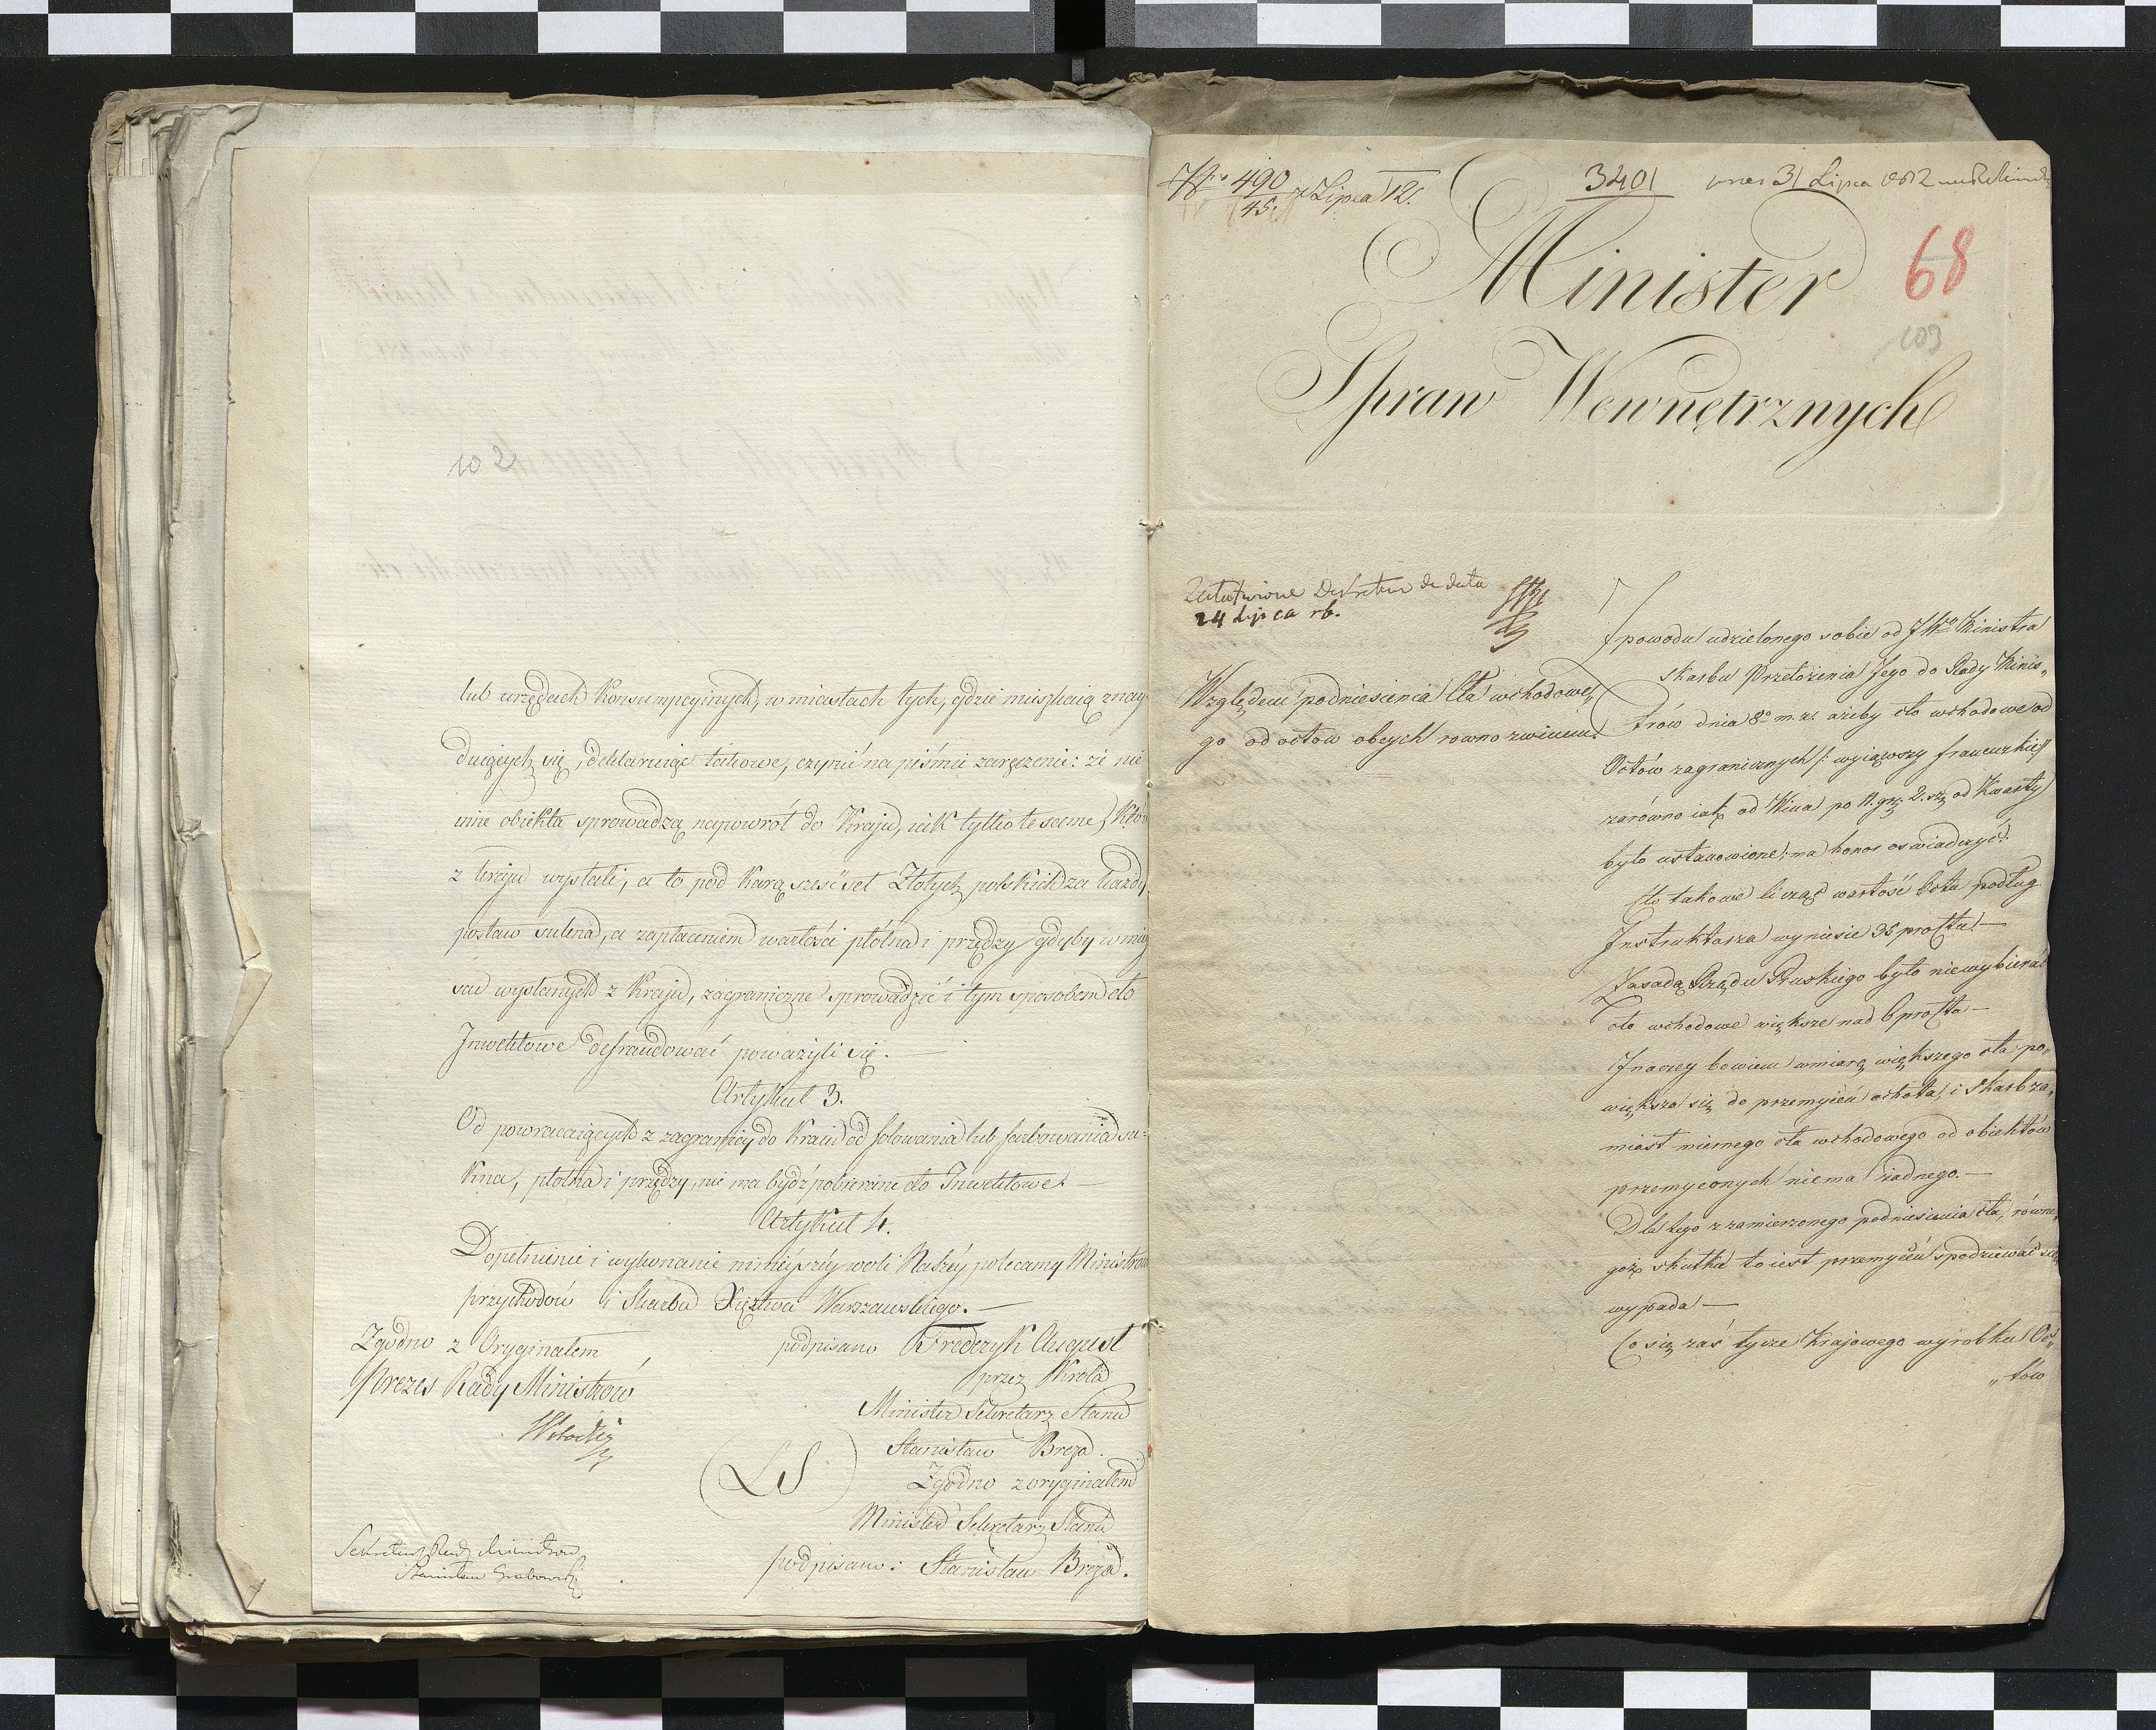 102
lub urzędach Konsumpcyinych, w miastach tych, gdzie mięszkaią znay
duiących się, deklaruiąc takowe, czynić na piśmie zaręczenie: że nie
inne obiekta sprowadzą napowrót do Kraju, iak tylko te same, któ
z kraju wysłali, a to pod karą sześćset Złotych polskich za każdy
postaw sukna, a zapłaceniem wartości płótna i przędzy, gdyby w miey
sce wysłanych z Kraju, zagraniczne sprowadzić i tym sposobem cło
Inwektowe defraudować poważyli się. —
Artykuł 3.
Od powracaiących z zagranicy do Kraiu od folowania lub farbowania su=
kna, płótna i przędzy, nie ma bydź pobierane cło Inwektowe. —
Artykuł 4.
Dopełnienie i wykonanie ninieyszéy woli Naszéy, polecamy Ministrow
przychodów i Skarbu Xięztwa Warszawskiego. —
Zgodno z Oryginałem
Prezes Rady Ministrów
podpisano Frederyk August
przez Króla
Minister Sekretarz Stanu
Stanisław Breza.
LS
Zgodno z oryginałem
Minister Sekretarz Stanu
podpisano: Stanisław Breza.
Sekretarz Rady Ministrów
Stanisław Grabowski
No 490 z Lipca 12.
45.
3401
31 Lipca 1812
68
103
Minister
Spraw Wewnętrznych
Załatwione Dekretem de dato
24 Lipca rb.
Względem podniesienia Cła wchodowe„
go od octów obcych równo z winem.
Z powodu udzielonego sobie od JWgo Ministra
Skarbu Przełożenia Jego do Rady Minis„
trów dnia 8o m. b. ażeby cło wchodowe od
Octów zagranicznych /: wyiąwszy francuzkie :/
zarówno iak od Wina po 11. gr. 2. sz. od Kwarty
było ustanowione; ma honor oświadczyć:
Cło takowe licząc wartość Octu podług
Instruktarza wyniesie 36 procta! —
Zasadą Rządu Pruskiego było niewybierać
cło wchodowe większe nad 6 procta —
Inaczey bowiem w miarę większego cła po„
większa się do przemyceń ochota, i Skarb za„
miast miernego cła wchodowego od obiektów
przemyconych niema żadnego. —
Dla tego z zamierzonego podniesienia cła, równe„
goż skutku to iest przemyceń spodziewać się
wypada —
Co się zaś tycze Krajowego wyrobku Oc„
„tów